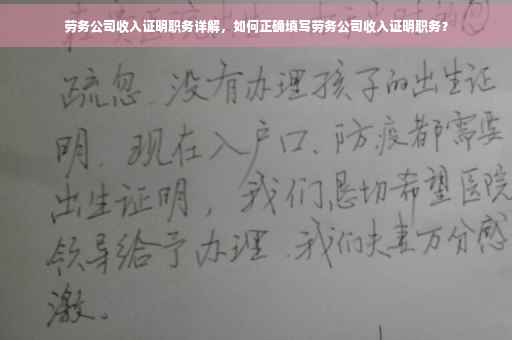 劳务公司收入证明职务详解，如何正确填写劳务公司收入证明职务？
疏忽、没有办理孩子的出生证
明、现在入户口、防疫都需要
出生证明，我们恳切希望医院
领导给予办理、我们夫妻万分感
激。